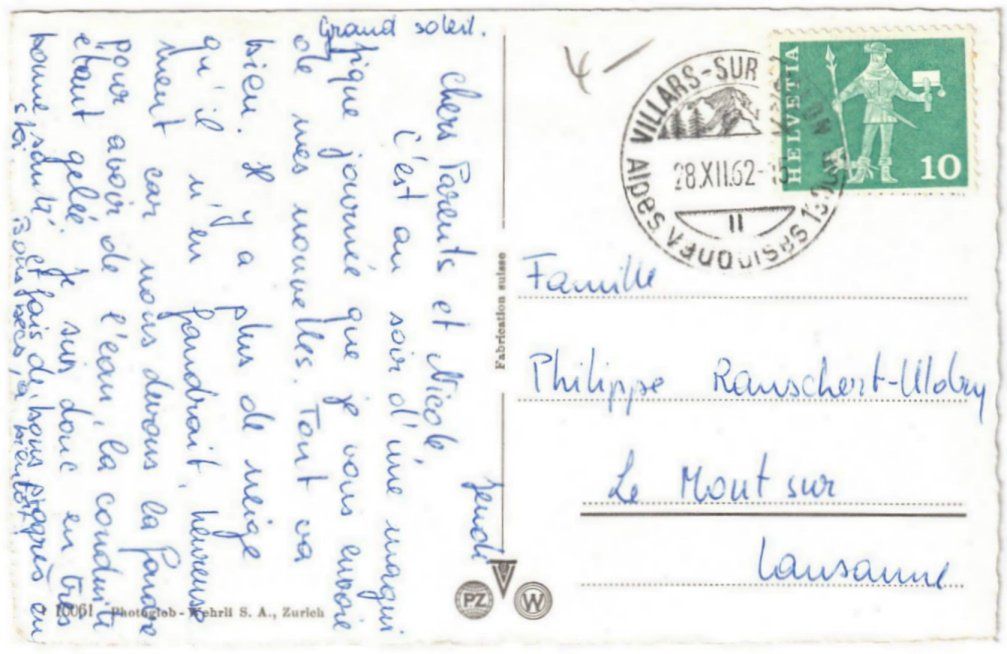 Grand soleil.
Jeudi
Chers Parents et Nicole,
C'est au soir d'une magni
fique journée que je vous envoie
de mes nouvelles. Tout va
bien. Il y a plus de neige
qu'il n'en faudrait, heureuse
ment car nous devons la fondre
pour avoir de l'eau, la conduite
étant gelée. Je suis donc en très
bonne santé et fais de bons progrès en
ski. Bons becs, à bientôt.
10061 Photoglob-Wehrli S. A., Zurich
Fabrication suisse
PZ W
4-
VILLARS-SUR
Alpes vaudoises
28.XII.62-15
II
HELVETIA
10
Famille
Philippe Rauschert-Uldry
Le Mont sur
Lausanne